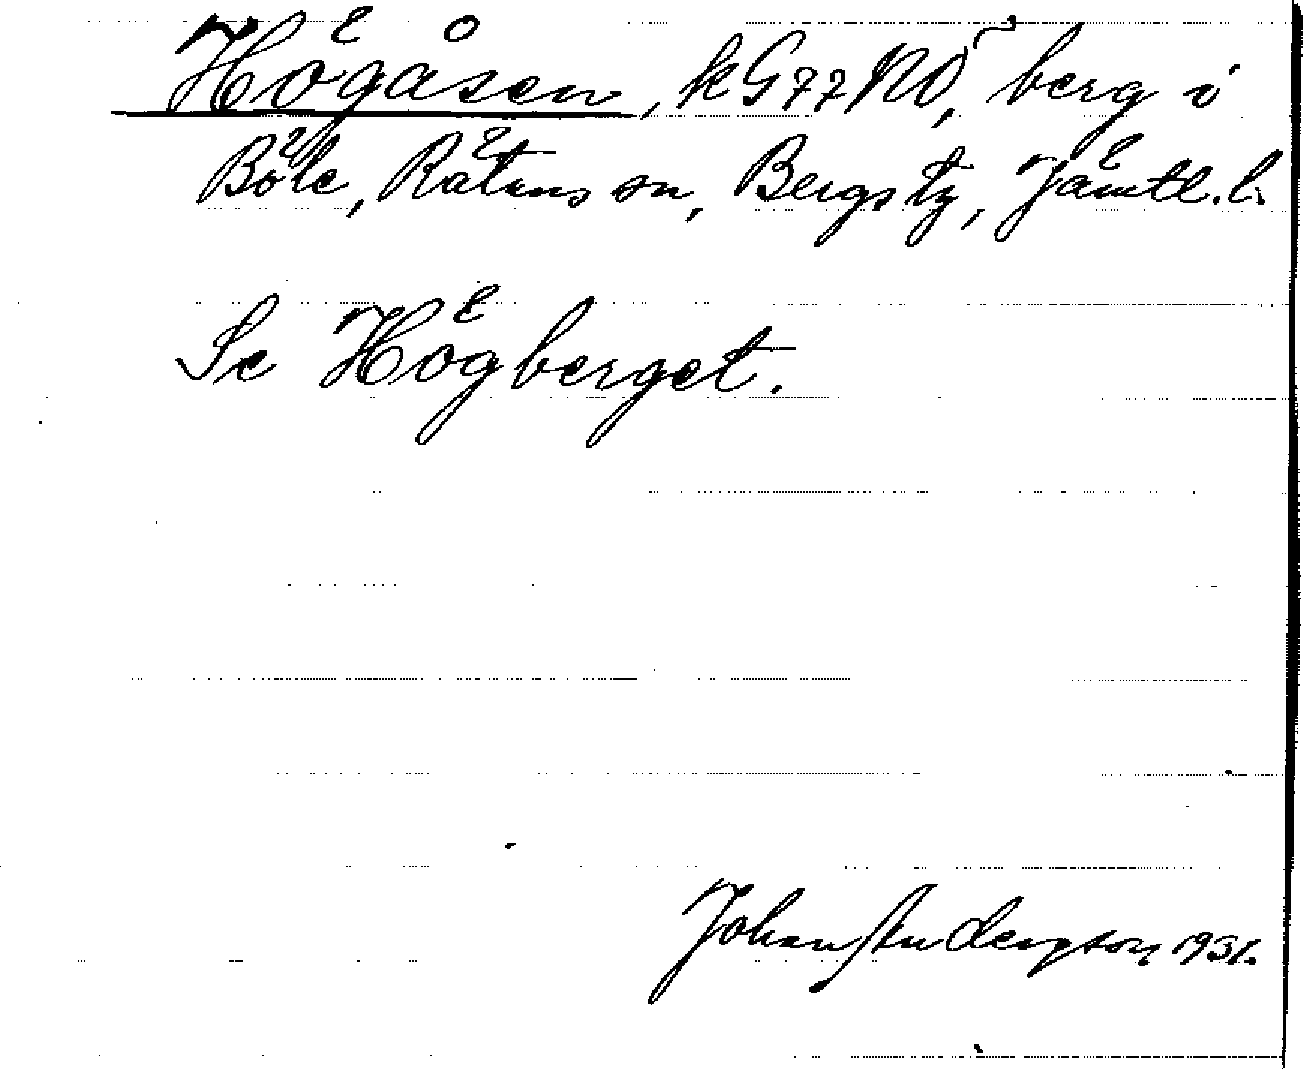 Högåsen, kG77NO, berg i
Böle, Rätans sn, Bergs tg, Jämtl. l.
Se Högberget.
Johan Anderson 1931.